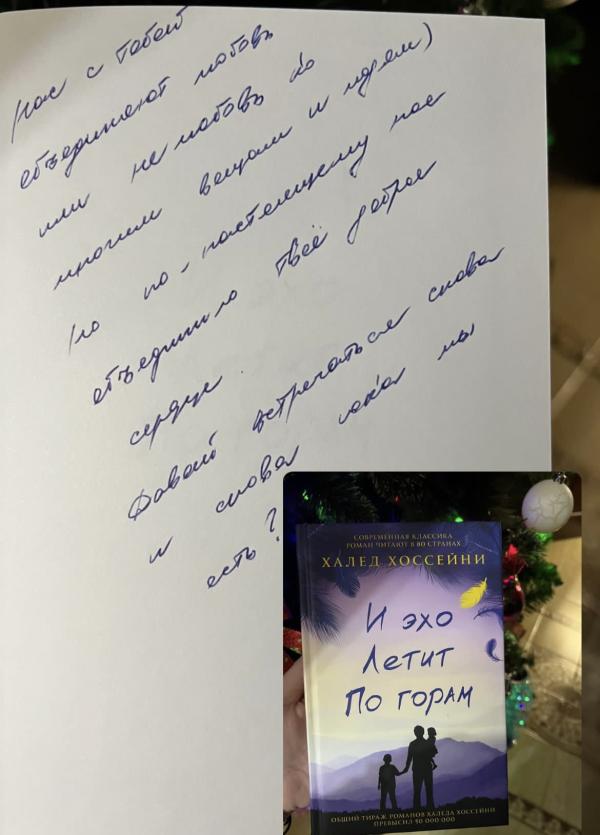 Нас с тобой
объединяют любовь
или не любовь ко
многим вещам и идеям)
Но по-настоящему нас
объединило твоё доброе
сердце.
Давай встречаться снова
и снова пока мы
есть?
СОВРЕМЕННАЯ КЛАССИКА
РОМАН ЧИТАЮТ В 80 СТРАНАХ
ХАЛЕД ХОССЕЙНИ
И эхо
Летит
По горам
ОБЩИЙ ТИРАЖ РОМАНОВ ХАЛЕДА ХОССЕЙНИ
ПРЕВЫСИЛ 50 000 000